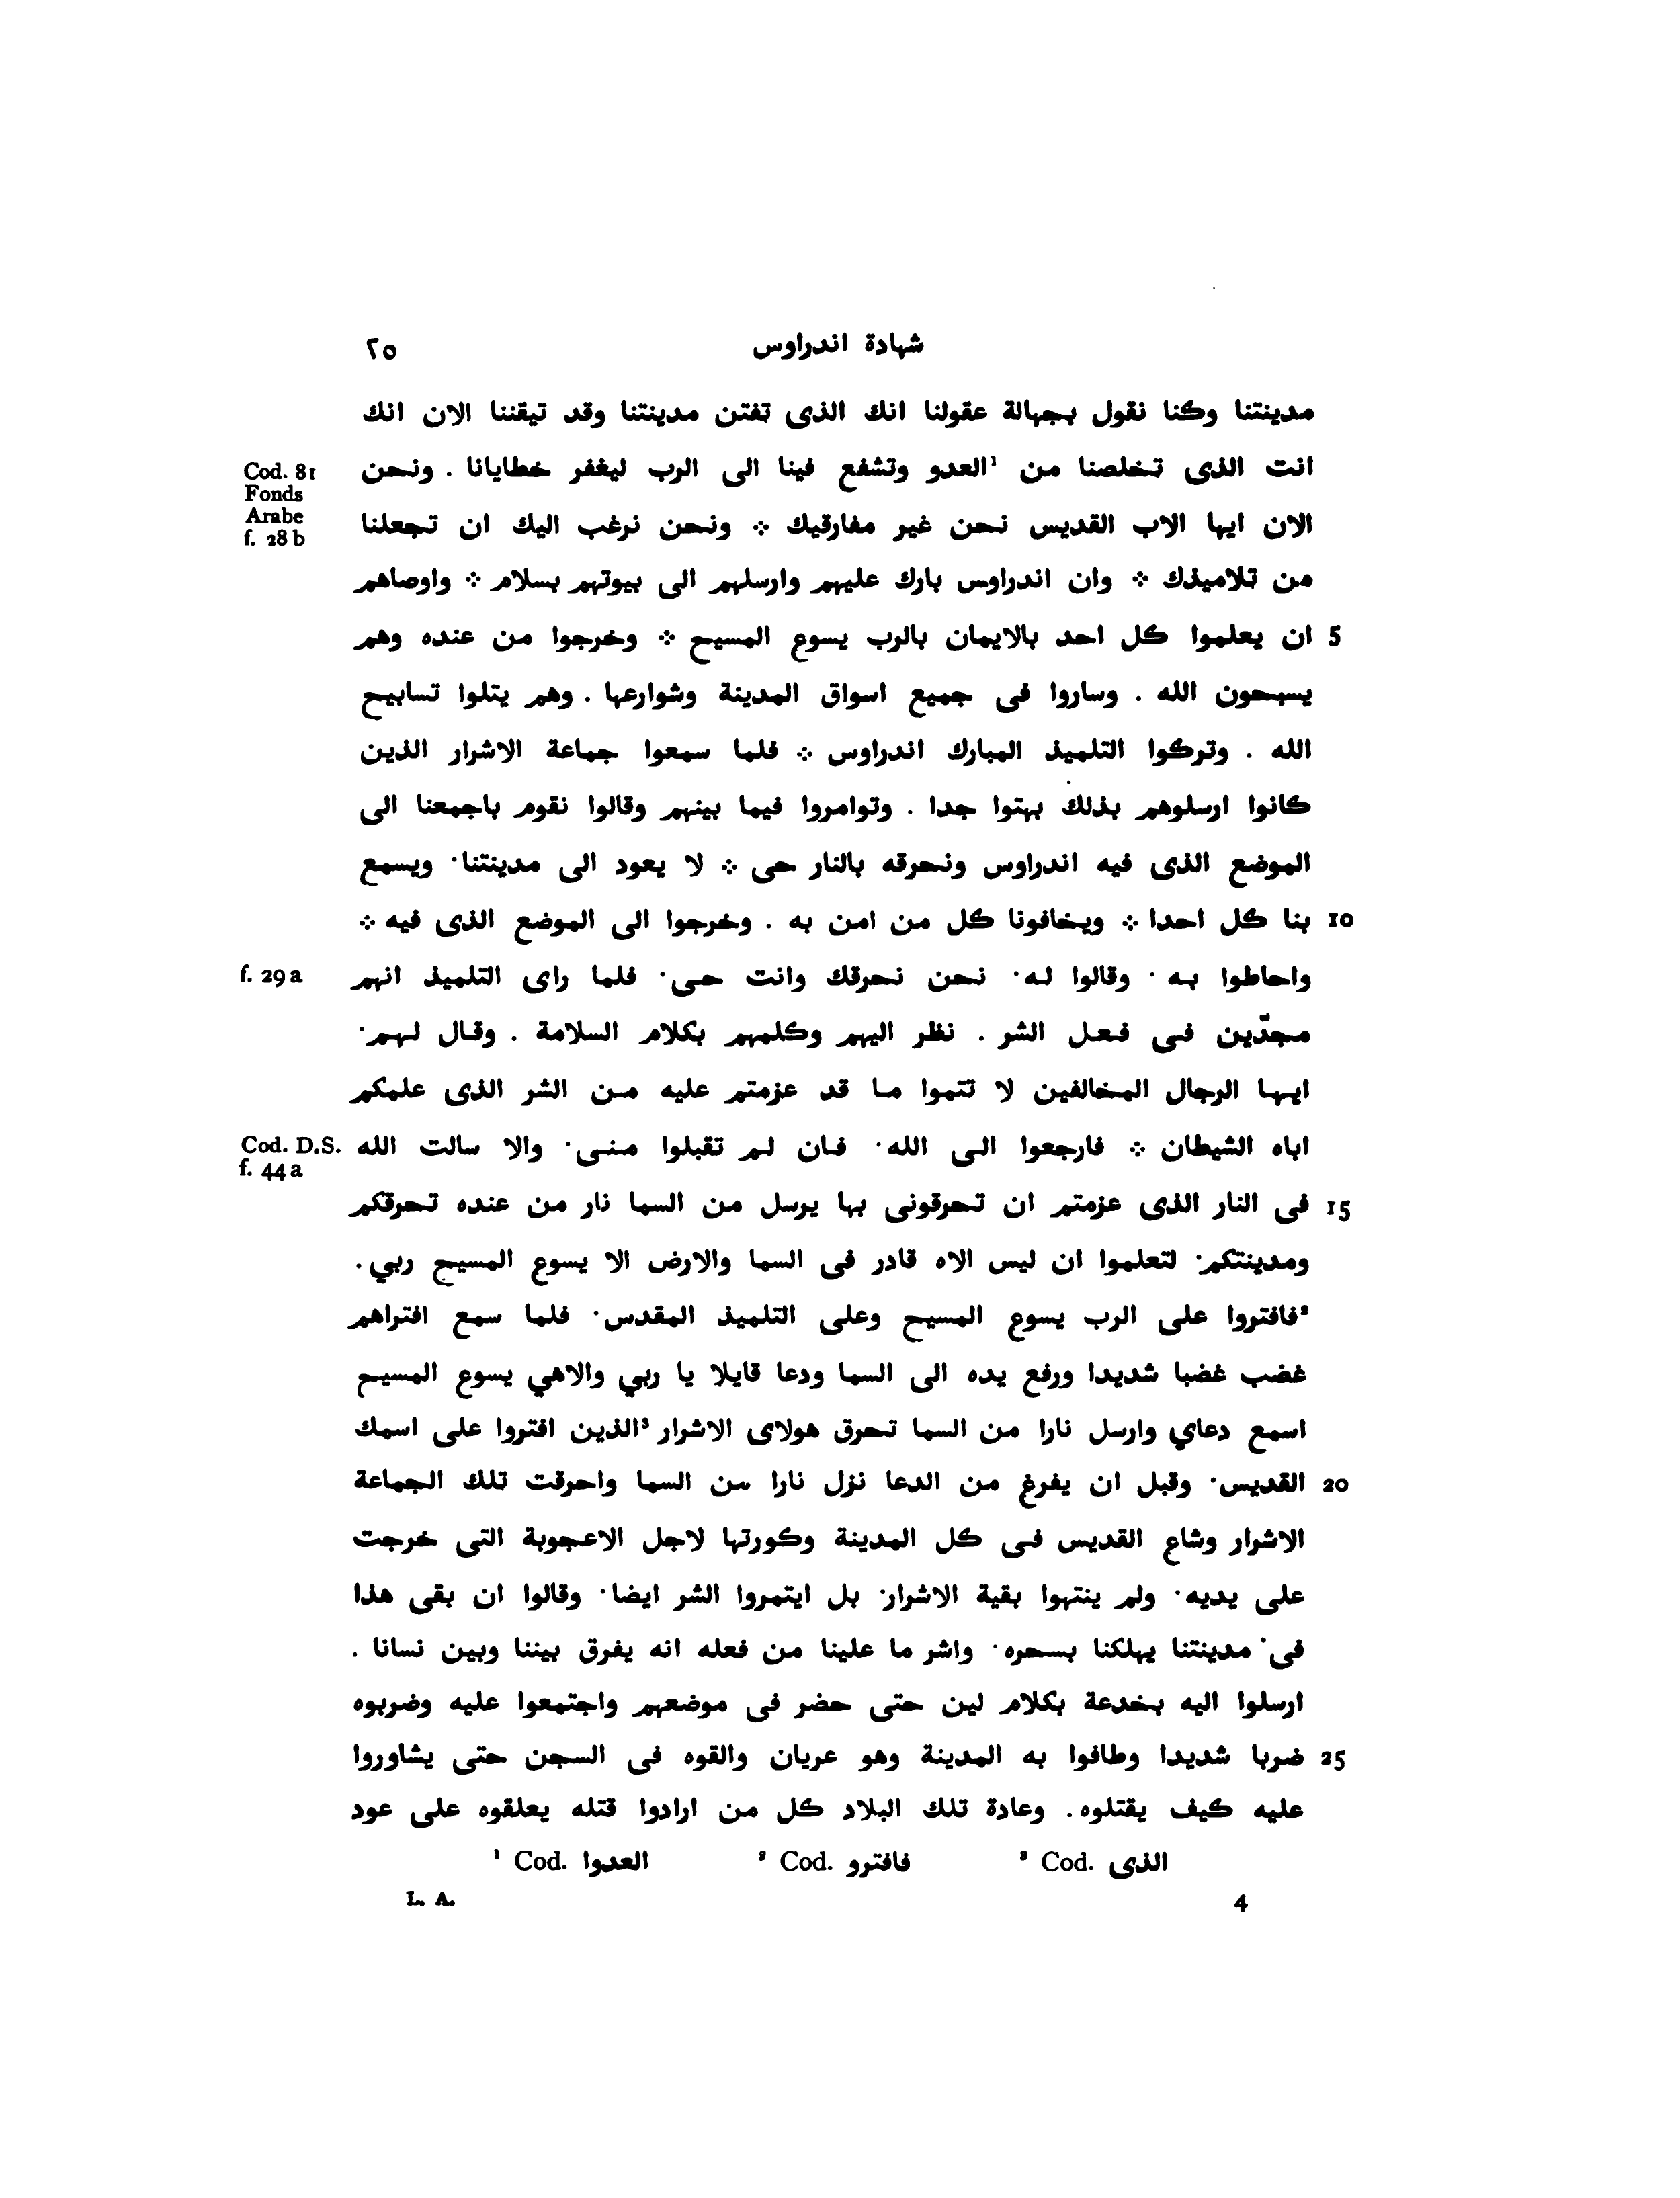 شهادة اندراوس ٢٥
مدينتنا وكنا نقول بجهالة عقولنا انك الذى تفتن مدينتنا وقد تيقننا الان انك
انت الذى تخلصنا من ¹العدو وتشفع فينا الى الرب ليغفر خطايانا . ونحن Cod. 81
Fonds
الان ايها الاب القديس نحن غير مفارقيك ⁘ ونحن نرغب اليك ان تجعلنا Arabe
f. 28 b
من تلاميذك ⁘ وان اندراوس بارك عليهم وارسلهم الى بيوتهم بسلام ⁘ واوصاهم
5 ان يعلموا كل احد بالايمان بالرب يسوع المسيح ⁘ وخرجوا من عنده وهم
يسبحون الله . وساروا فى جميع اسواق المدينة وشوارعها . وهم يتلوا تسابيح
الله . وتركوا التلميذ المبارك اندراوس ⁘ فلما سمعوا جماعة الاشرار الذين
كانوا ارسلوهم بذلك بهتوا جدا . وتوامروا فيما بينهم وقالوا نقوم باجمعنا الى
الموضع الذى فيه اندراوس ونحرقه بالنار حى ⁘ لا يعود الى مدينتنا· ويسمع
10 بنا كل احدا ⁘ ويخافونا كل من امن به . وخرجوا الى الموضع الذى فيه ⁘
واحاطوا به · وقالوا له· نحن نحرقك وانت حى· فلما راى التلميذ انهم f. 29 a
مجدّين فى فعل الشر . نظر اليهم وكلمهم بكلام السلامة . وقال لهم·
ايها الرجال المخالفين لا تتموا ما قد عزمتم عليه من الشر الذى علمكم
اباه الشيطان ⁘ فارجعوا الى الله· فان لم تقبلوا منى· والا سالت الله Cod. D.S.
f. 44 a
15 فى النار الذى عزمتم ان تحرقونى بها يرسل من السما نار من عنده تحرقكم
ومدينتكم· لتعلموا ان ليس الاه قادر فى السما والارض الا يسوع المسيح ربي .
²فافتروا على الرب يسوع المسيح وعلى التلميذ المقدس· فلما سمع افتراهم
غضب غضبا شديدا ورفع يده الى السما ودعا قايلا يا ربي والاهي يسوع المسيح
اسمع دعاي وارسل نارا من السما تحرق هولاى الاشرار ³الذين افتروا على اسمك
20 القديس· وقبل ان يفرغ من الدعا نزل نارا من السما واحرقت تلك الجماعة
الاشرار وشاع القديس فى كل المدينة وكورتها لاجل الاعجوبة التى خرجت
على يديه· ولم ينتهوا بقية الاشرار· بل ايتمروا الشر ايضا· وقالوا ان بقى هذا
فى· مدينتنا يهلكنا بسحره· واشر ما علينا من فعله انه يفرق بيننا وبين نسانا .
ارسلوا اليه بخدعة بكلام لين حتى حضر فى موضعهم واجتمعوا عليه وضربوه
25 ضربا شديدا وطافوا به المدينة وهو عريان والقوه فى السجن حتى يشاوروا
عليه كيف يقتلوه. وعادة تلك البلاد كل من ارادوا قتله يعلقوه على عود
¹ Cod. العدوا ² Cod. فافترو ³ Cod. الذى
L. A. 4